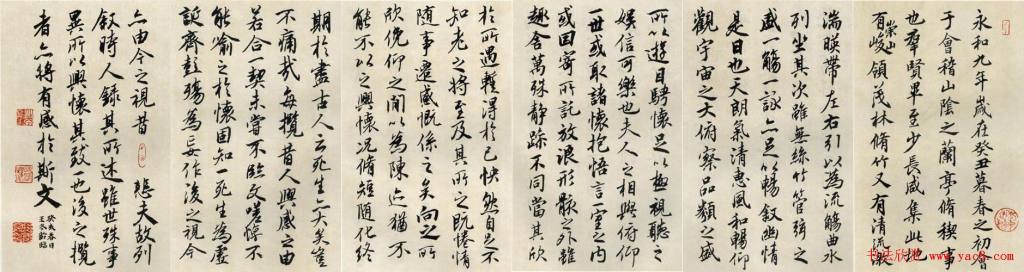 永和九年歲在癸丑暮春之初會
于會稽山陰之蘭亭脩稧事
也羣賢畢至少長咸集此地
有崇山峻領茂林脩竹又有清流激
湍暎帶左右引以為流觴曲水
列坐其次雖無絲竹管弦之
盛一觴一詠亦足以暢敘幽情
是日也天朗氣清惠風和暢仰
觀宇宙之大俯察品類之盛
所以遊目騁懷足以極視聽之
娛信可樂也夫人之相與俯仰
一世或取諸懷抱悟言一室之內
或因寄所託放浪形骸之外雖
趣舍萬殊靜躁不同當其欣
於所遇蹔得於己快然自足不
知老之將至及其所之既惓情
隨事遷感慨係之矣向之所
欣俛仰之閒以為陳迹猶不
能不以之興懷況脩短隨化終
期於盡古人云死生亦大矣豈
不痛哉每攬昔人興感之由
若合一契未嘗不臨文嗟悼不
能喻之於懷固知一死生為虛
誕齊彭殤為妄作後之視今
亦由今之視昔 悲夫故列
敘時人錄其所述雖世殊事
異所以興懷其致一也後之攬
者亦將有感於斯文
书法欣赏
www.yac8.com